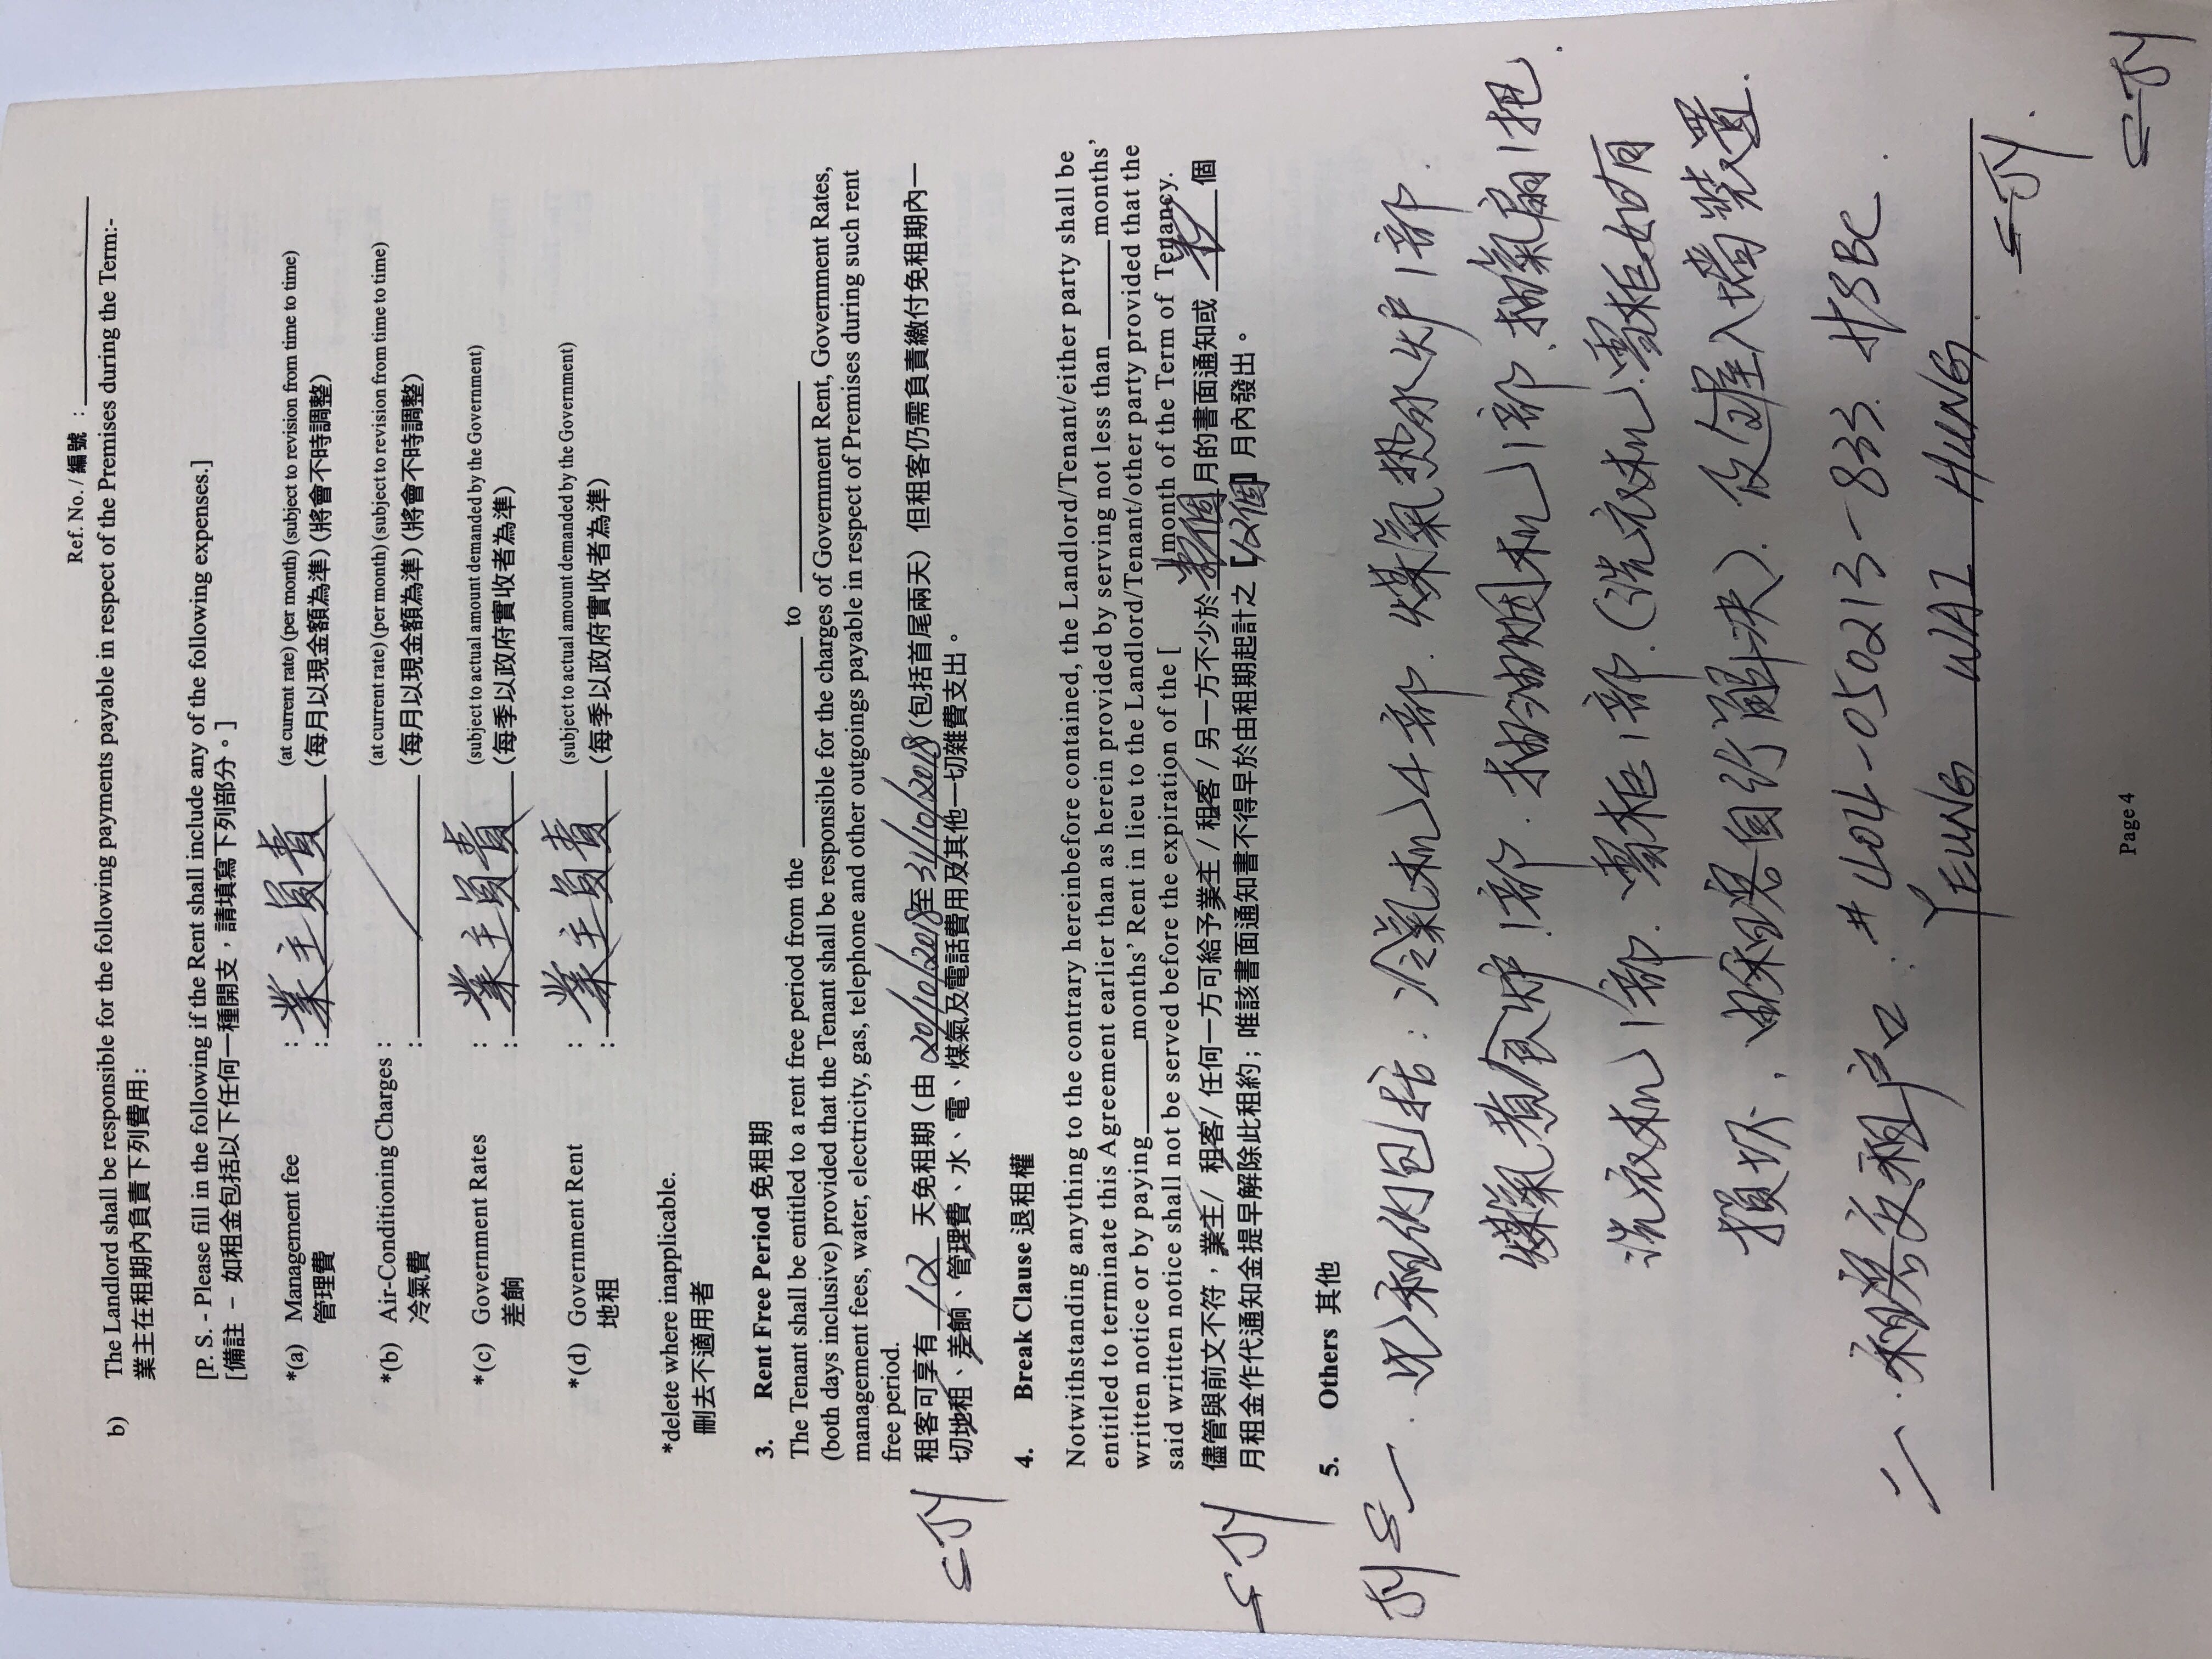 Ref. No. / 編號 :
b) The Landlord shall be responsible for the following payments payable in respect of the Premises during the Term:-
業主在租期內負責下列費用:
[P. S. - Please fill in the following if the Rent shall include any of the following expenses.]
[備註 – 如租金包括以下任何一種開支，請填寫下列部分。]
*(a) Management fee : (at current rate) (per month) (subject to revision from time to time)
管理費 : 業主負責 (每月以現金額為準) (將會不時調整)
*(b) Air-Conditioning Charges : (at current rate) (per month) (subject to revision from time to time)
冷氣費 : (每月以現金額為準) (將會不時調整)
*(c) Government Rates : (subject to actual amount demanded by the Government)
差餉 : 業主負責 (每季以政府實收者為準)
*(d) Government Rent : (subject to actual amount demanded by the Government)
地租 : 業主負責 (每季以政府實收者為準)
*delete where inapplicable.
刪去不適用者
3. Rent Free Period 免租期
The Tenant shall be entitled to a rent free period from the ______ to ______
(both days inclusive) provided that the Tenant shall be responsible for the charges of Government Rent, Government Rates,
management fees, water, electricity, gas, telephone and other outgoings payable in respect of Premises during such rent
free period.
租客可享有 12 天免租期 (由 20/10/2018 至 31/10/2018 (包括首尾兩天) 但租客仍需負責繳付免租期內一
切地租、差餉、管理費、水、電、煤氣及電話費用及其他一切雜費支出。
4. Break Clause 退租權
Notwithstanding anything to the contrary hereinbefore contained, the Landlord/Tenant/either party shall be
entitled to terminate this Agreement earlier than as herein provided by serving not less than ______ months'
written notice or by paying ______ months' Rent in lieu to the Landlord/Tenant/other party provided that the
said written notice shall not be served before the expiration of the [ ] month of the Term of Tenancy.
儘管與前文不符，業主/ 租客/ 任何一方可給予業主 / 租客 / 另一方不少於 月的書面通知或 個
月租金作代通知金提早解除此租約；唯該書面通知書不得早於由租期起計之 [12個] 月內發出。
5. Others 其他
一. 此租約包括: 冷氣机4部. 煤氣热水炉1部.
煤氣煮食炉1部. 抽油烟机1部. 抽氣扇1把.
洗衣机1部. 雪柜1部. (洗衣机. 雪柜如有
損坏, 由租客自行解决). 及包屋入墙裝置.
二. 租客交租户口: #404-050213-833. HSBC.
YEUNG WAI HUNG.
Page 4